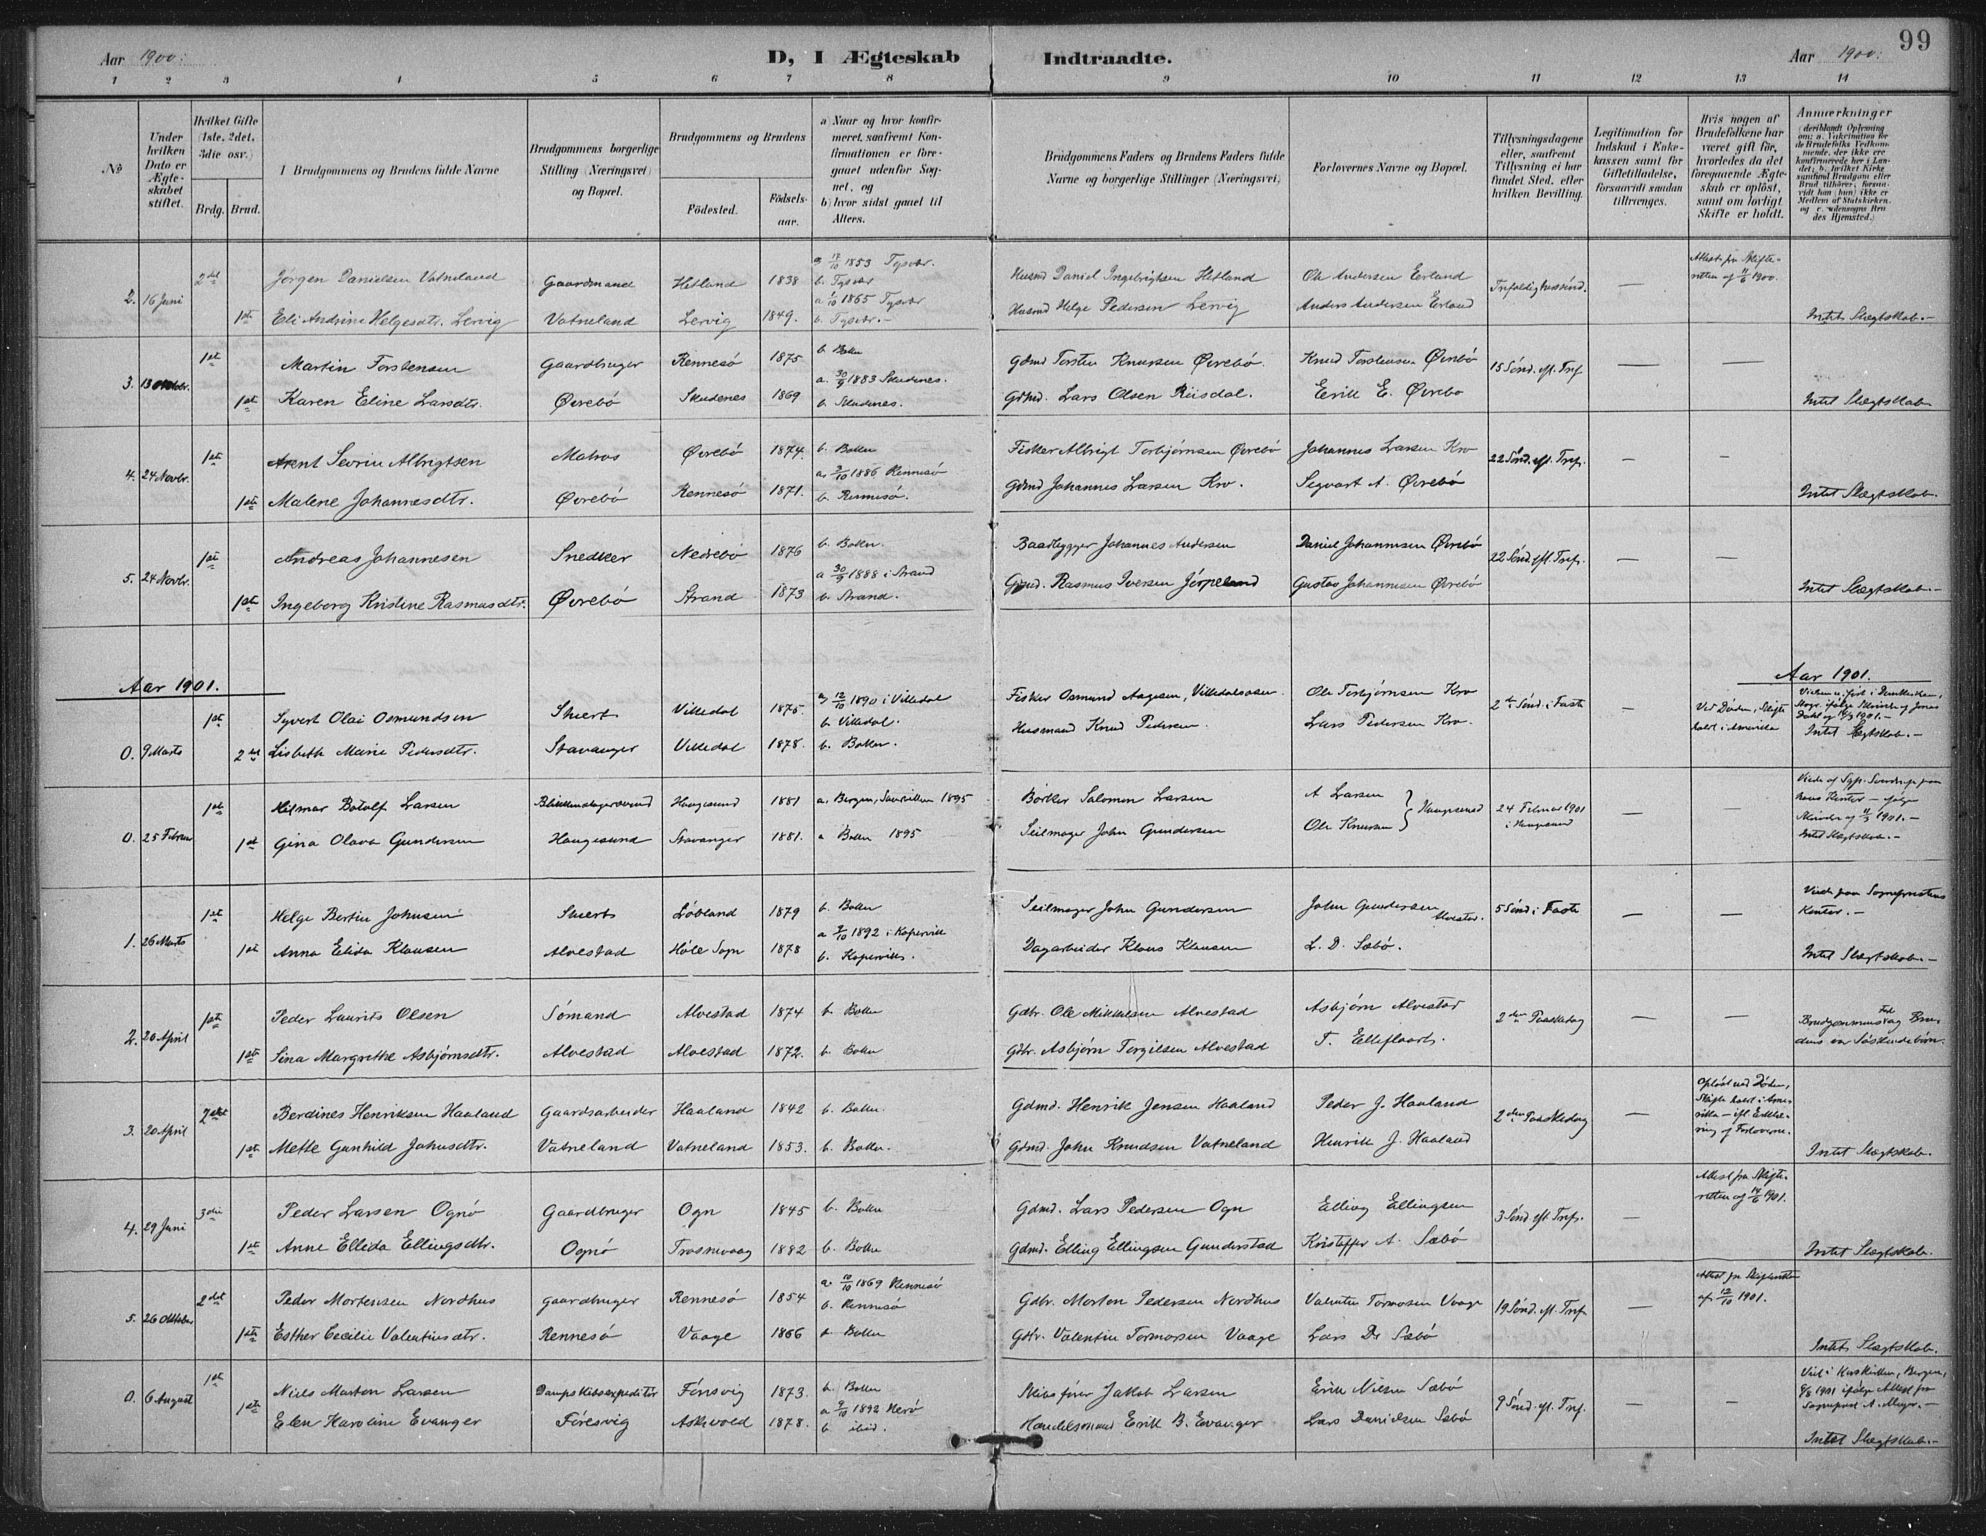 99
Aar 1900. D, I Ægteskab Indtraadte. Aar 1900.
1 2 3 4 5 6 7 8 9 10 11 12 13 14
No
Under hvilken Dato er Ægteskabet stiftet.
Hvilket Gifte (1ste, 2det, 3die osv.)
Brdg. Brud.
I Brudgommens og Brudens fulde Navne
Brudgommens borgerlige Stilling (Næringsvei) og Bopæl.
Brudgommens og Brudens
Fødested. Fødselsaar.
a) Naar og hvor konfirmeret, saafremt Konfirmationen er foregaaet udenfor Sognet, og
b) hvor sidst gaaet til Alters.
Brudgommens Faders og Brudens Faders fulde Navne og borgerlige Stillinger (Næringsvei)
Forlovernes Navne og Bopæl.
Tillysningsdagene eller, saafremt Tillysning ei har fundet Sted, efter hvilken Bevilling.
Legitimation for Indskud i Enkekassen samt for Giftetilladelse, forsaavidt saadan tiltrænges.
Hvis nogen af Brudefolkene har været gift før, hvorledes da det foregaaende Ægteskab er opløst, samt om lovligt Skifte er holdt.
Anmærkninger
2. 16 Juni 2det Jørgen Danielsen Vatneland Gaardmand Hetland 1838 a 17/10 1853 Tysvær. b. Tysvær Husmd Daniel Ingebrigtsen Hetland Ole Andersen Erland Trefoldighedssønd. — Attest fra Skifteretten af 11/6 1900.
1ste Eli Andrine Helgesdtr. Lervig Vatneland Lervig 1849. a 1/10 1865 Tysvær b. Tysvær.— Husmd Helge Pedersen Lervig Anders Andersen Erland Intet Slægtskab.—
3. 13 Oktobr. 1ste Martin Torstensen Gaardbruger Rennesø 1875 b. Bokn Gdmd Torsten Knutsen Øvrebø. Knud Torstensen Øvrebø 15 Sønd. eft. Tref. — —
1ste Karen Eline Larsdtr. Øvrebø Skudenes 1869 a. 30/9 1883 Skudenes. b. Skudenes. Gdmd. Lars Olsen Riisdal. Erik E. Øvrebø Intet Slægtskab.
4. 24 Novbr. 1ste Arent Severin Albrigtsen Matros Øvrebø 1874. b. Bokn Fisker Albrigt Torbjørnsen Øvrebø Johannes Larsen Kro 22 Sønd. eft. Tref. — —
1ste Malene Johannesdtr. Øvrebø Rennesø 1871. a. 3/10 1886 Rennesø b. Rennesø. Gdmd Johannes Larsen Kro. Segvart A. Øvrebø Intet Slægtskab.
5. 24 Novbr. 1ste Andreas Johannesen Snedker Nedrebø 1876 b. Bokn. Baadbygger Johannes Andersen Daniel Johannesen Øvrebø 22 Sønd. eft. Tref. — —
1ste Ingeborg Kristine Rasmusdtr. Øvrebø Strand 1873 a 30/9 1888 i Strand b. Strand. Gdmd. Rasmus Iversen Jørpeland Gustav Johannesen Øvrebø Intet Slægtskab.—
Aar 1901. Aar 1901.
0. 9 Marts 1ste Syvert Olai Osmundsen Stuert Villedal 1875. a) 12/10 1890 i Villedal b. Villedal. Fisker Osmund Aagesen, Villedalsosen Ole Torbjørnsen Kro 2den Sønd. i Faste — Ved Døden, Skifte holdt i Amerika
2det Lisbeth Marie Pedersdtr. Stavanger Villedal 1878. b. Bokn. Husmand Knud Pedersen. Lars Pedersen Kro. Intet Slægtskab.—
0. 25 Februar 1ste Hilmar Botolf Larsen Blikkenslagersvend Haugesund 1881 a. Bergen, 1895 Bødker Salomon Larsen A Larsen 24 Februar 1901 i Haugesund — —
1ste Gina Olava Gundersen Haugesund Stavanger 1881. a Bokn 1895 Seilmager John Gundersen Ole Knutsen } Haugesund Intet Slægtskab.—
1. 26 Marts 1ste Helge Bertin Johnsen Stuert Løbland 1879 b. Bokn Seilmager John Gundersen John Gundersen Alvestad. 5 Sønd. i Faste — — Viede paa Sognepræstens Kontor.—
1ste Anna Elida Klausen Alvestad Høle Sogn 1878 a 2/10 1892 i Kopervik b. Kopervik. Dagarbeider Klaus Klausen L. D. Sæbø. Intet Slægtskab.—
2. 20 April 1ste Peder Laurits Olsen Sømand Alvestad 1874 b. Bokn Gdbr. Ole Mikkelsen Alvestad Asbjørn Alvestad 2den Paaskedag — — Brudgommens og Brudens Far Søskendebørn.
1ste Sina Margrethe Asbjørnsdtr. Alvestad Alvestad 1872. b. Bokn Gdbr. Asbjørn Torgilsen Alvestad T. Elleflaadt.
3. 20 April 2det Berdines Henriksen Haaland Gaardsarbeider Haaland 1842 b. Bokn. Gdmd. Henrik Jensen Haaland Peder J. Haaland 2den Paaskedag — Opløst ved Døden, Skifte holdt i Amerika — eft. Erklæring af Forloverne.
1ste Mette Gunhild Johnsdtr. Vatneland Vatneland 1853. b. Bokn. Gdmd. John Knudsen Vatneland Henrik J. Haaland Intet Slægtskab.
4. 29 Juni 3die Peder Larsen Ognø Gaardbruger Ogn 1845 b. Bokn Gdmd. Lars Pedersen Ogn Elling Ellingsen 3 Sønd. eft. Tref. — Attest fra Skifteretten af 14/6 1901.
1ste Anne Ellida Ellingsdtr. Ognø Trosnavaag 1882 b. Bokn Gdmd. Elling Ellingsen Gunderstad Kristoffer A. Sæbø Intet Slægtskab.
5. 26 Oktober 2det Peder Mortensen Nordhus Gaardbruger Rennesø 1854 a. 10/10 1869 Rennesø b. Rennesø Gdbr. Morten Pedersen Nordhus Valentin Tormosen Vaage 19 Sønd. eft. Tref. — Attest fra Skifteretten af 12/10 1901.
1ste Esther Cecilie Valentinsdtr. Rennesø Vaage 1866 b Bokn Gdbr. Valentin Tormorsen Vaage Lars D. Sæbø Intet Slægtskab.
0. 6 August 1ste Niels Morton Larsen Dampskibsexpeditør Føresvig 1873. b. Bokn Skibsfører Jakob Larsen Erik Nilsen Sæbø 9 Sønd. eft. Tref. — — Viet i Korskirken, Bergen, 6/8 1901 ifølge Attest fra Sognepræst A. Meyer.—
1ste Elen Karoline Evanger Føresvig Askvold 1878. a 9/10 1892 b ibid. Handelsmand Erik B. Evanger Lars Danielsen Sæbø Intet Slægtskab.—